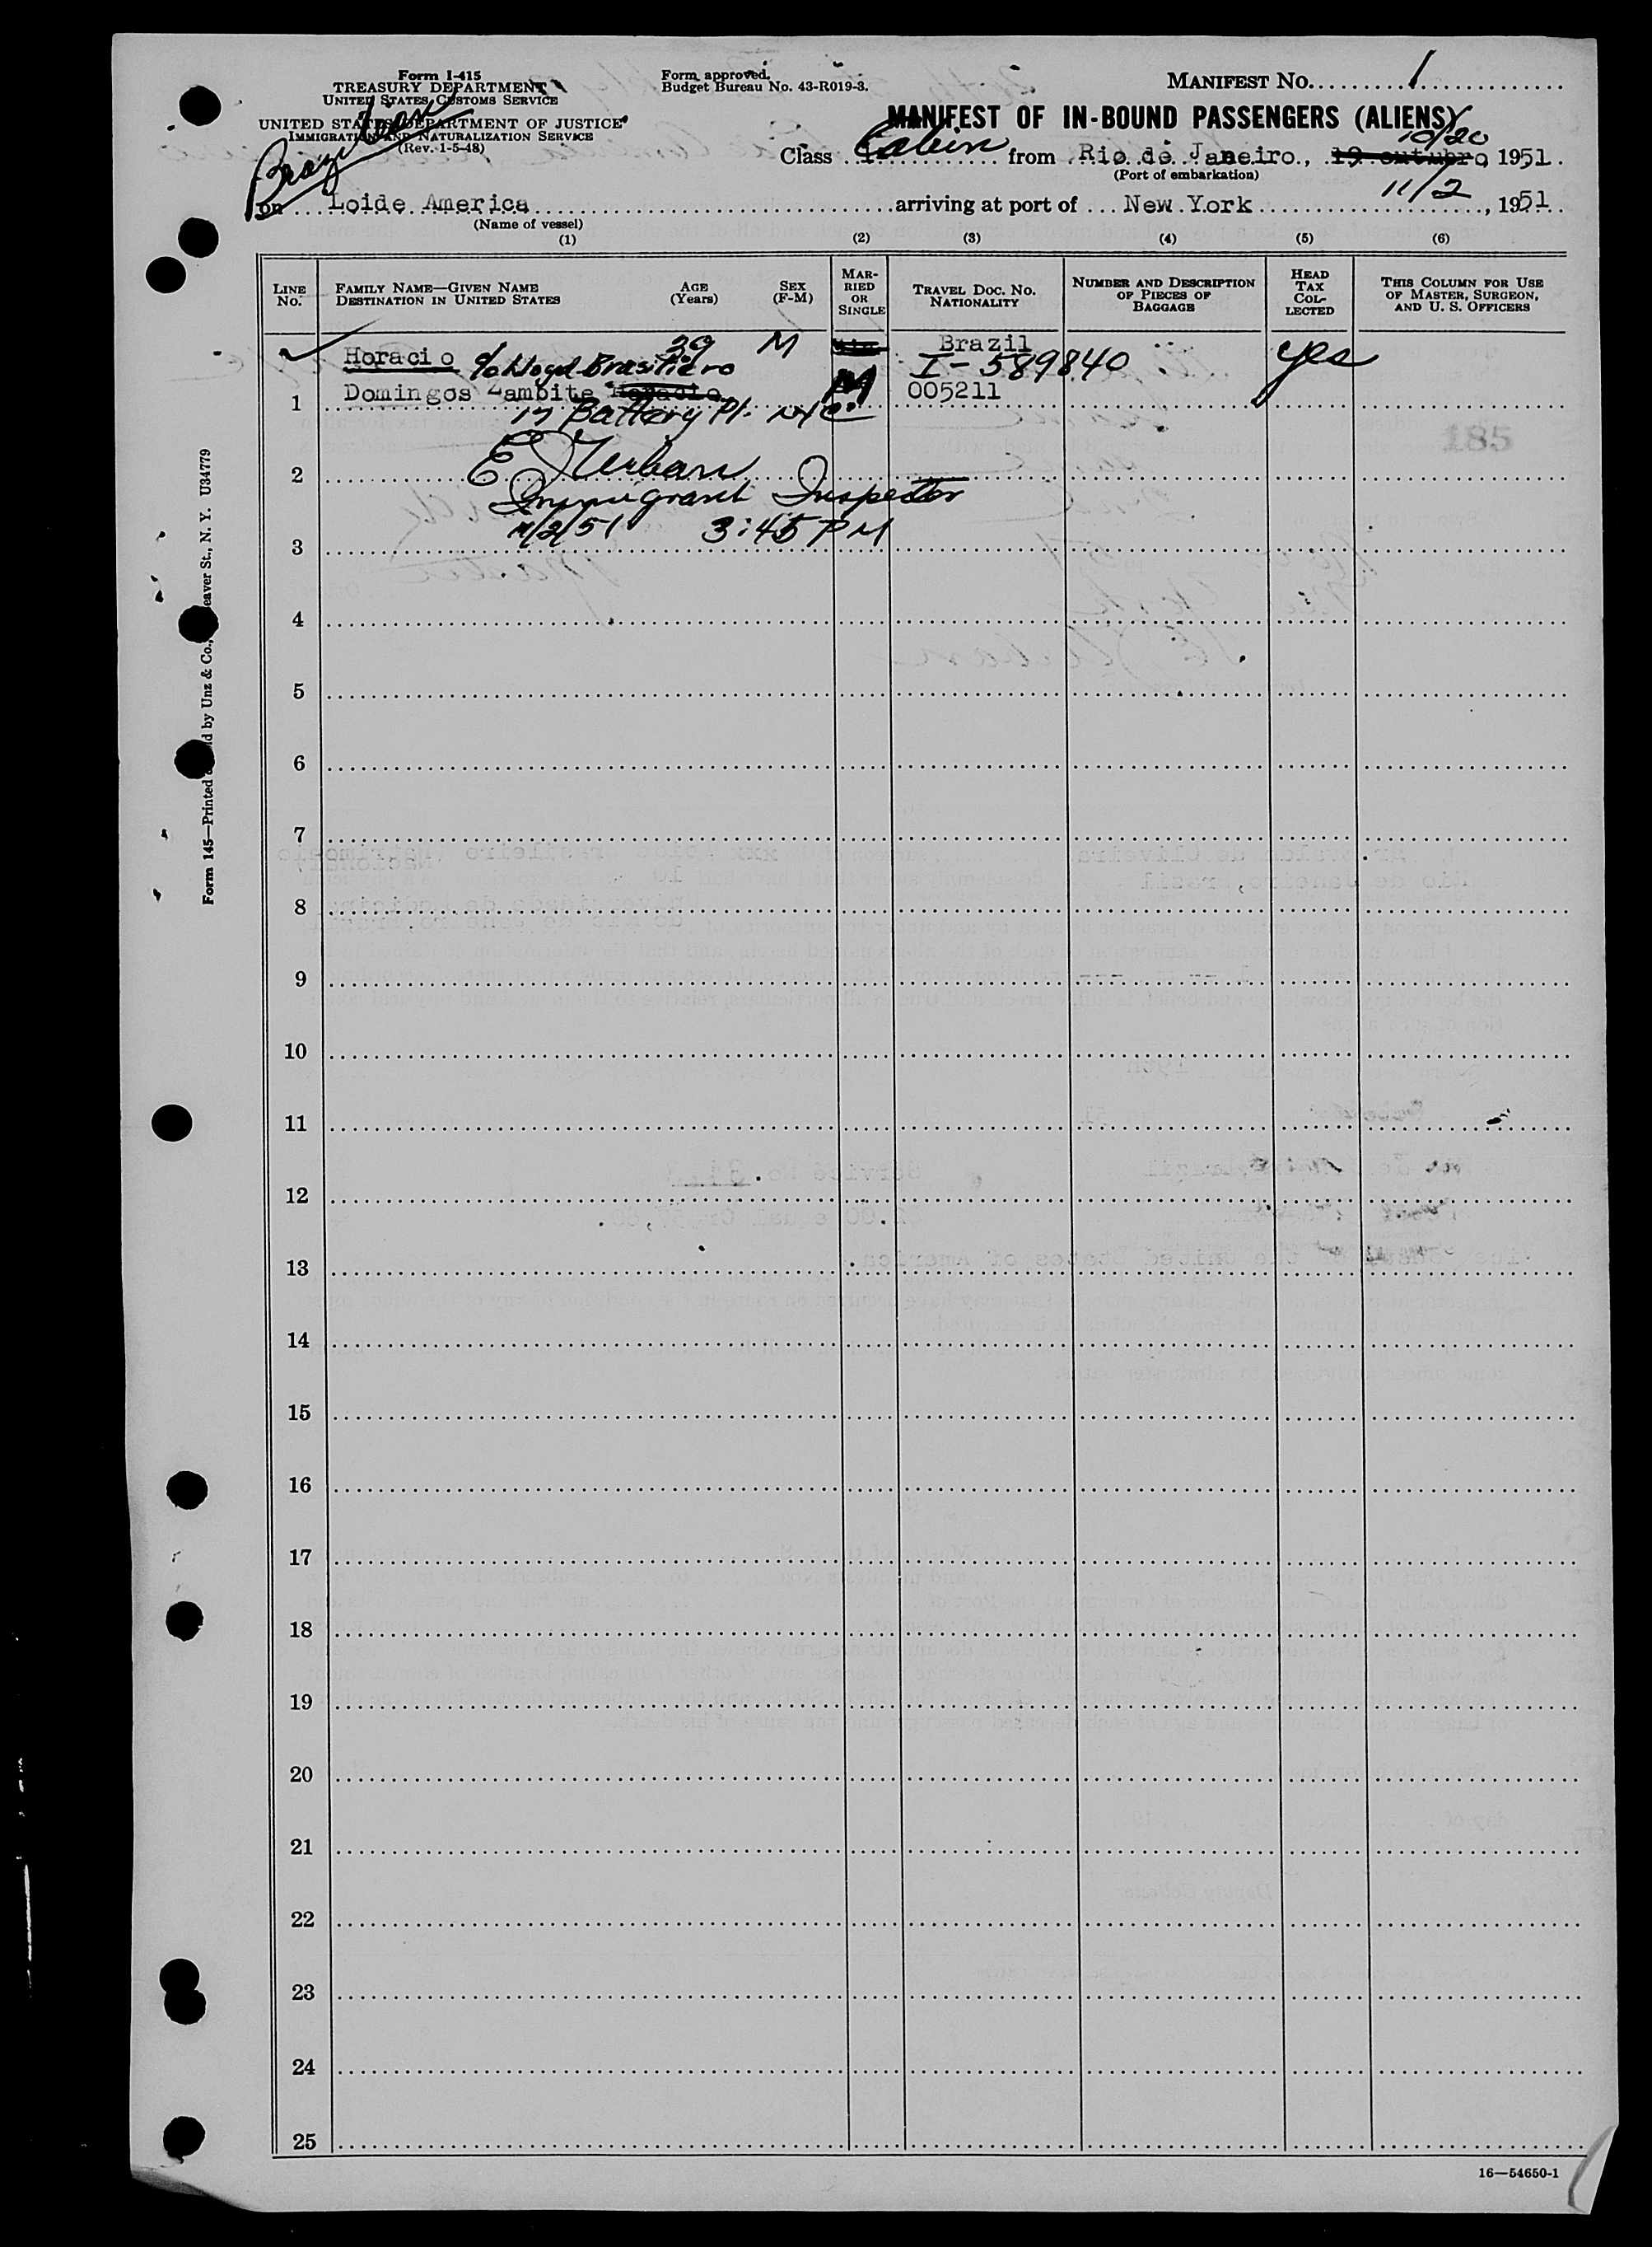 Form I-415
TREASURY DEPARTMENT
UNITED STATES CUSTOMS SERVICE
UNITED STATES DEPARTMENT OF JUSTICE
IMMIGRATION AND NATURALIZATION SERVICE
(Rev. 1-5-48)
Brazilian
Form approved.
Budget Bureau No. 43-R019-3.
MANIFEST No. 1
MANIFEST OF IN-BOUND PASSENGERS (ALIENS)
10/20
Class Cabin from Rio de Janeiro, 19 outubro, 1951
(Port of embarkation)
on Loide America arriving at port of New York 11/2, 1951
(Name of vessel)
(1) (2) (3) (4) (5) (6)
LINE No. FAMILY NAME—GIVEN NAME DESTINATION IN UNITED STATES AGE (Years) SEX (F-M) MARRIED OR SINGLE TRAVEL DOC. NO. NATIONALITY NUMBER AND DESCRIPTION OF PIECES OF BAGGAGE HEAD TAX COLLECTED THIS COLUMN FOR USE OF MASTER, SURGEON, AND U. S. OFFICERS
Horacio c/o Lloyd Brasiliero 39 M Brazil I-589840 yes
1 Domingos Zambite Horacio M 005211
17 Battery Pl. NYC
2 E
Immigrant Inspector
3 11/2/51 3:45 PM
4
5
6
7
8
9
10
11
12
13
14
15
16
17
18
19
20
21
22
23
24
25
185
Form 145—Printed by Unz & Co., Beaver St., N. Y. U34779
16—54650-1